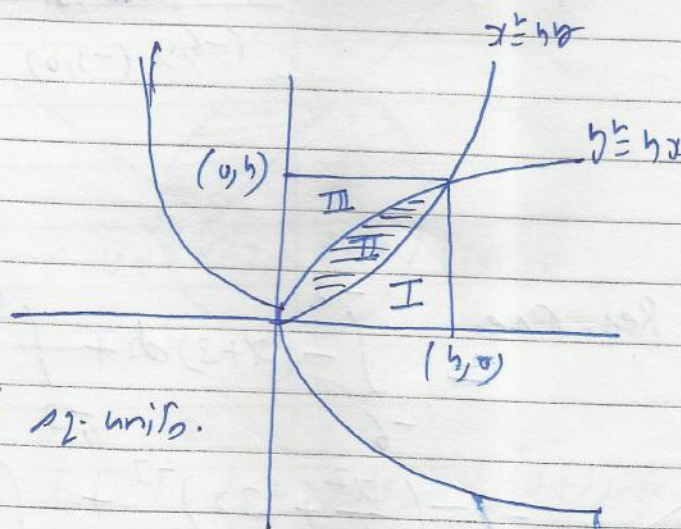 x² = 4y
y² = 4x
(0,4)
III
II
I
(4,0)
sq. units.